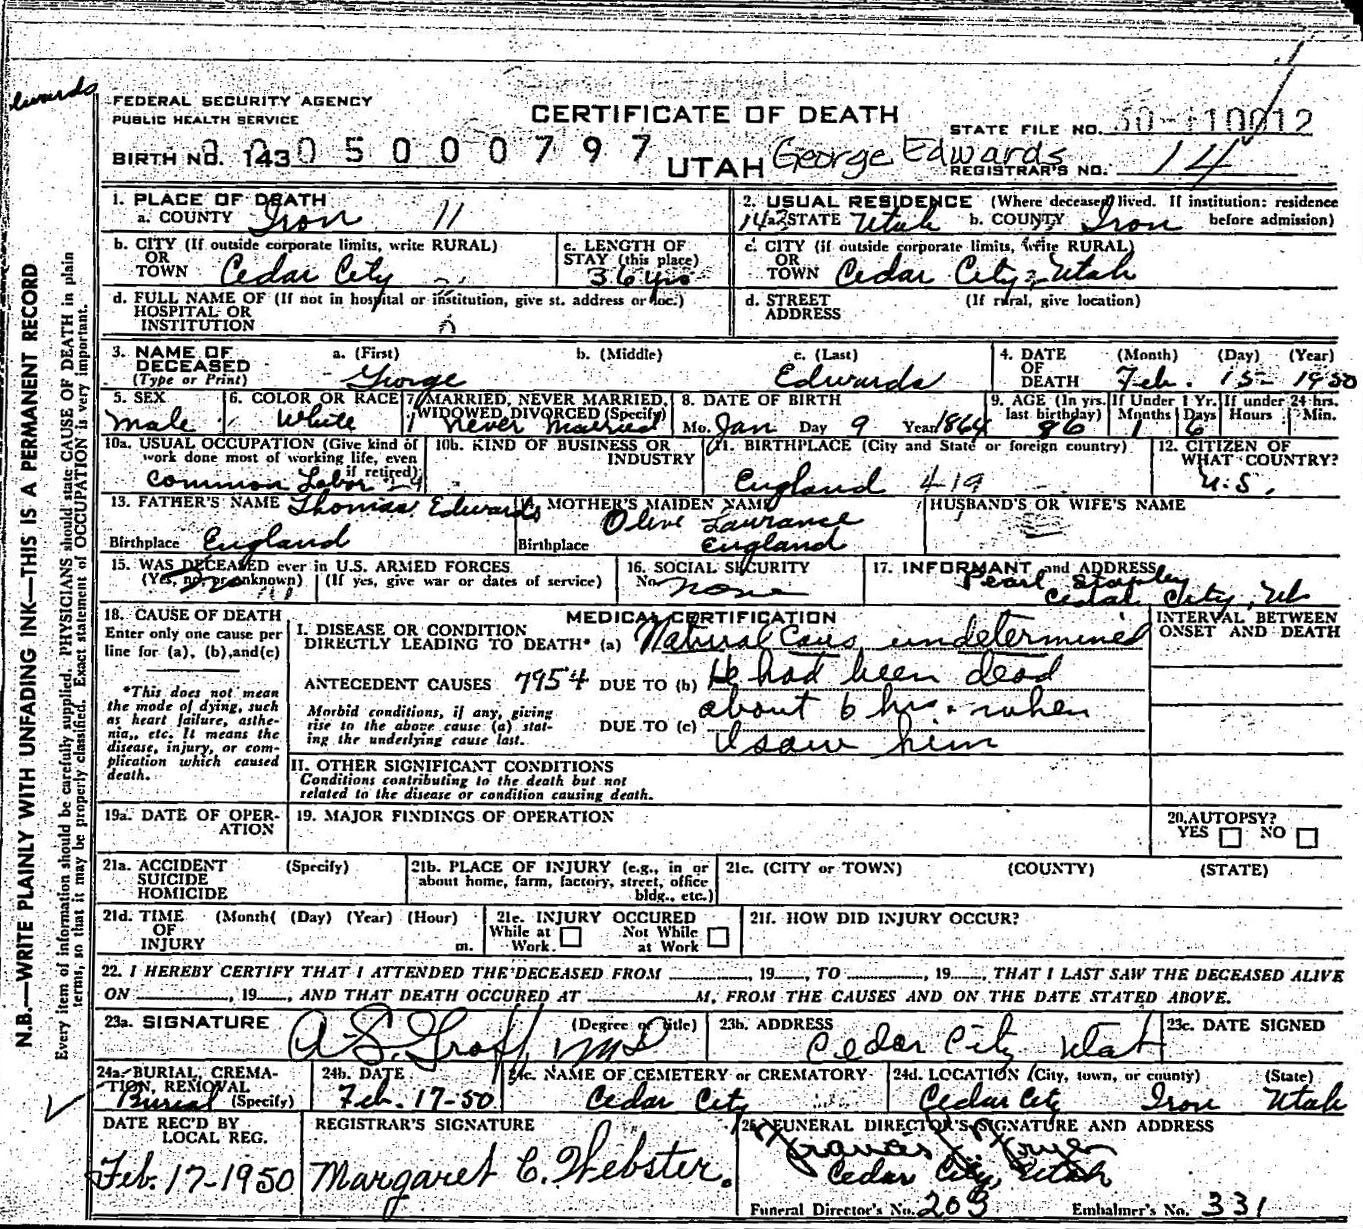 Edwards
FEDERAL SECURITY AGENCY
PUBLIC HEALTH SERVICE
CERTIFICATE OF DEATH
STATE FILE NO. 50-110012
BIRTH NO. 143 05000797
UTAH George Edwards
REGISTRAR'S NO. 14
N.B.—WRITE PLAINLY WITH UNFADING INK—THIS IS A PERMANENT RECORD
Every item of information should be carefully supplied. PHYSICIANS should state CAUSE OF DEATH in plain
terms, so that it may be properly classified. Exact statement of OCCUPATION is very important.
1. PLACE OF DEATH
a. COUNTY Iron 11
2. USUAL RESIDENCE (Where deceased lived. If institution: residence
before admission)
a. STATE Utah b. COUNTY Iron
b. CITY (If outside corporate limits, write RURAL)
OR
TOWN Cedar City
c. LENGTH OF
STAY (this place)
36 yrs
c. CITY (if outside corporate limits, write RURAL)
OR
TOWN Cedar City, Utah
d. FULL NAME OF (If not in hospital or institution, give st. address or loc.)
HOSPITAL OR
INSTITUTION
d. STREET (If rural, give location)
ADDRESS
3. NAME OF
DECEASED
(Type or Print)
a. (First) b. (Middle) c. (Last)
George Edwards
4. DATE
OF
DEATH
(Month) (Day) (Year)
Feb. 15 1950
5. SEX
Male
6. COLOR OR RACE
White
7. MARRIED, NEVER MARRIED,
WIDOWED DIVORCED (Specify)
Never Married
8. DATE OF BIRTH
Mo. Jan Day 9 Year 1864
9. AGE (In yrs. last birthday)
86
If Under 1 Yr. Months Days
1 6
If under 24 hrs. Hours Min.
10a. USUAL OCCUPATION (Give kind of
work done most of working life, even
if retired)
Common Labor
10b. KIND OF BUSINESS OR
INDUSTRY
11. BIRTHPLACE (City and State or foreign country)
England 419
12. CITIZEN OF
WHAT COUNTRY?
U.S.
13. FATHER'S NAME Thomas Edwards
Birthplace England
MOTHER'S MAIDEN NAME
Olive Laurance
Birthplace England
HUSBAND'S OR WIFE'S NAME
15. WAS DECEASED ever in U.S. ARMED FORCES
(Yes, no, or unknown) (If yes, give war or dates of service)
no
16. SOCIAL SECURITY
No. none
17. INFORMANT and ADDRESS
Pearl Stapley
Cedar City, Ut
18. CAUSE OF DEATH
Enter only one cause per
line for (a), (b), and (c)
*This does not mean
the mode of dying, such
as heart failure, asthe-
nia, etc. It means the
disease, injury, or com-
plication which caused
death.
MEDICAL CERTIFICATION
INTERVAL BETWEEN
ONSET AND DEATH
I. DISEASE OR CONDITION
DIRECTLY LEADING TO DEATH* (a) Natural Caus undetermined
ANTECEDENT CAUSES 7954 DUE TO (b) He had been dead
about 6 hrs. when
Morbid conditions, if any, giving
rise to the above cause (a) stat-
ing the underlying cause last.
DUE TO (c) I saw him
II. OTHER SIGNIFICANT CONDITIONS
Conditions contributing to the death but not
related to the disease or condition causing death.
19a. DATE OF OPER-
ATION
19. MAJOR FINDINGS OF OPERATION
20. AUTOPSY?
YES NO
21a. ACCIDENT (Specify)
SUICIDE
HOMICIDE
21b. PLACE OF INJURY (e.g., in or
about home, farm, factory, street, office
bldg., etc.)
21c. (CITY or TOWN) (COUNTY) (STATE)
21d. TIME (Month( (Day) (Year) (Hour)
OF
INJURY m.
21e. INJURY OCCURED
While at Not While
Work. at Work
21f. HOW DID INJURY OCCUR?
22. I HEREBY CERTIFY THAT I ATTENDED THE DECEASED FROM , 19 , TO , 19 , THAT I LAST SAW THE DECEASED ALIVE
ON , 19 , AND THAT DEATH OCCURED AT M, FROM THE CAUSES AND ON THE DATE STATED ABOVE.
23a. SIGNATURE (Degree or title)
MD
23b. ADDRESS
Cedar City Utah
23c. DATE SIGNED
24a. BURIAL, CREMA-
TION, REMOVAL
Burial (Specify)
24b. DATE
Feb. 17-50
24c. NAME OF CEMETERY or CREMATORY
Cedar City
24d. LOCATION (City, town, or county) (State)
Cedar City Iron Utah
DATE REC'D BY
LOCAL REG.
Feb. 17-1950
REGISTRAR'S SIGNATURE
Margaret C. Webster.
25. FUNERAL DIRECTOR'S SIGNATURE AND ADDRESS
Cedar City, Utah
Funeral Director's No. 203 Embalmer's No. 331